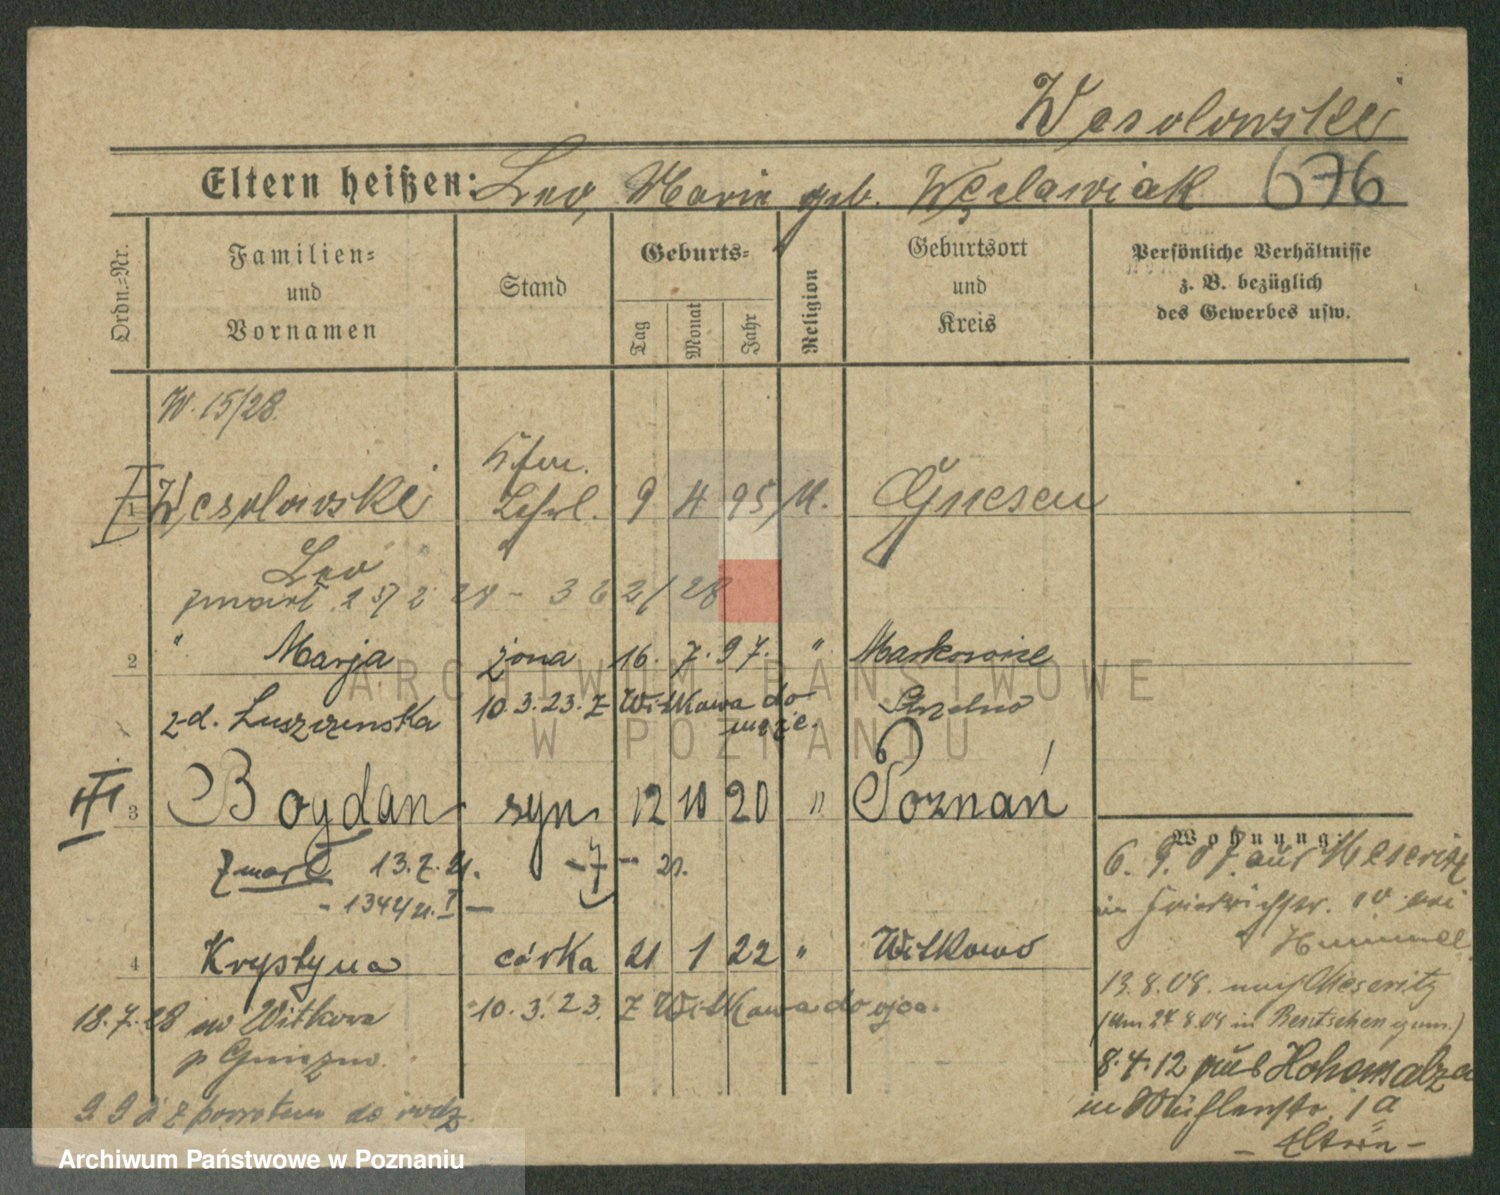 Wesolowski
Eltern heißen: Leo, Marie geb. Węclawiak 676
Ordn.=Nr.
Familien=
und
Vornamen
Stand
Geburts=
Tag
Monat
Jahr
Religion
Geburtsort
und
Kreis
Persönliche Verhältnisse
z. B. bezüglich
des Gewerbes usw.
W. 15/28.
Kfm.
I 1 Wesolowski Lehrl. 9 4 95 Gnesen
Leo
zmarł 25/2 28 - 362/28
2 " Marja żona 16. 7. 97. " Markowice
z d. Luszczenska 10.3.23. z Witkowa do Strzelno
męża.
III 3 Bogdan syn 12 10 20 " Poznań
zmarł 13.7.21. - 7 - 21.
- 1342/21. I -
4 Krystyna córka 21 1 22 " Witkowo
10.3.23. z Witkowa do ojca.
18.7.28 do Witkowa
p Gniezno.
z powrotem do rodz.
Wohnung:
6. 9. 07. aus Meseritz
in Friedrichstr. 10 bei
Hummel
13.8.08. nach Meseritz
(am 27.8.08 in Bentschen gem.)
8.4.12 aus Hohensalza
in Mühlenstr. 1a
- Eltern -
ARCHIWUM PAŃSTWOWE
W POZNANIU
Archiwum Państwowe w Poznaniu